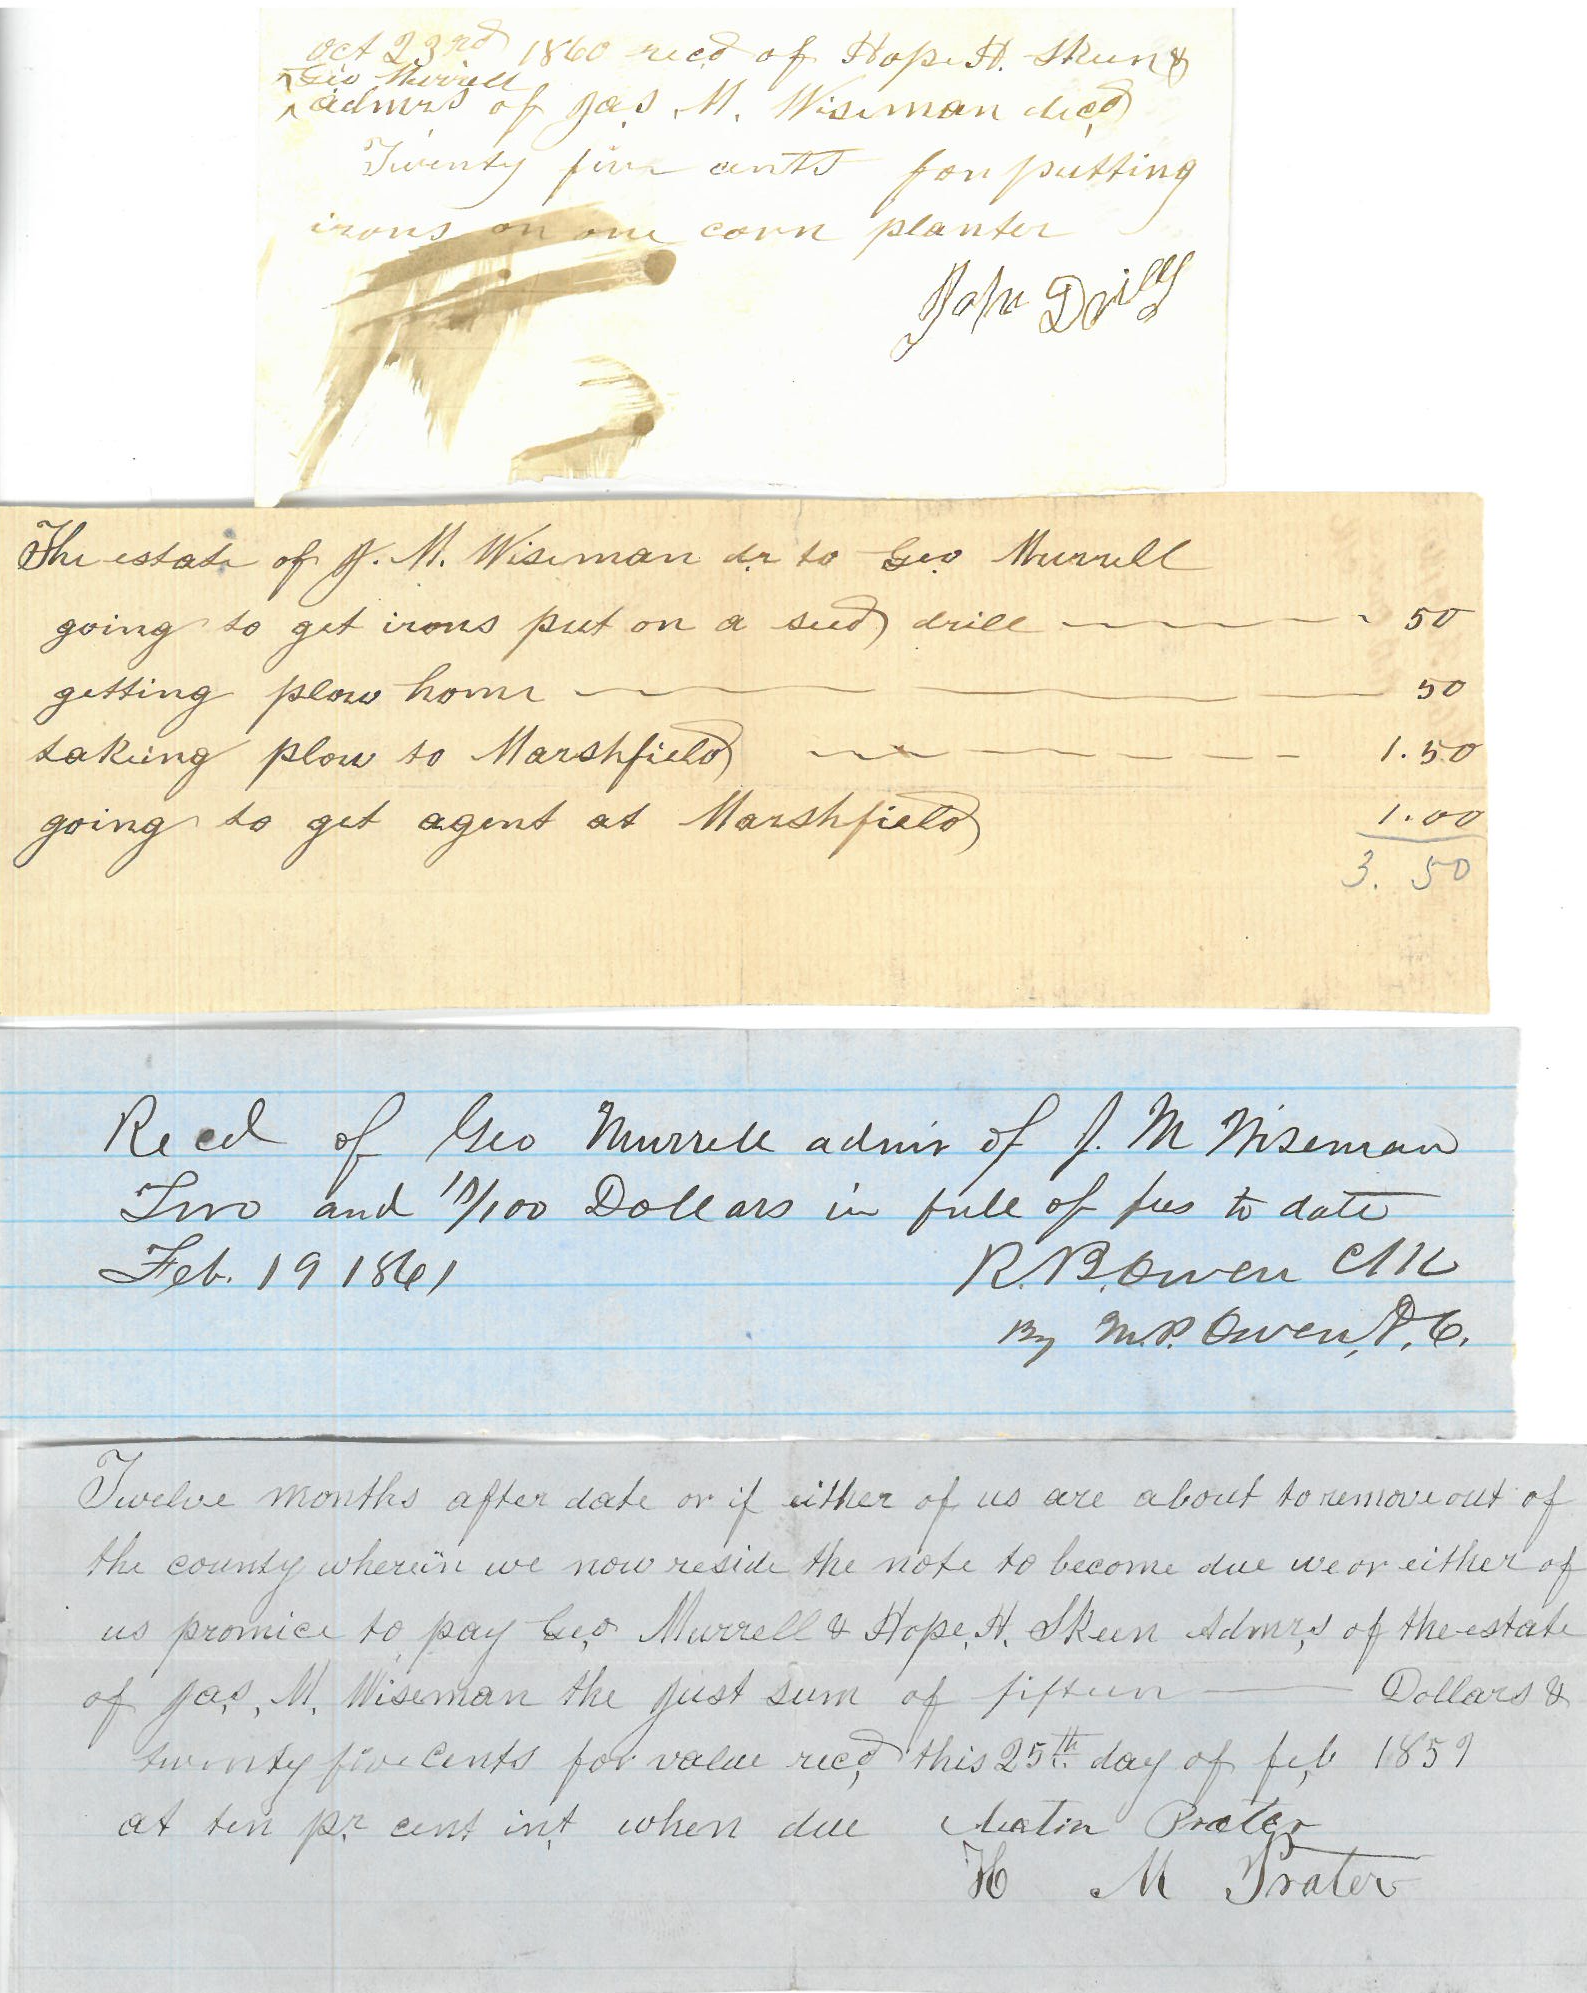 Oct 23rd 1860 recd of Hope H. Skeen &
^ Geo Murrell
admrs of Jas. M. Wiseman decd
Twenty five cents for putting
irons on one corn planter
John
The estate of J. M. Wiseman dr to Geo Murrell
going to get irons put on a seed drill 50
getting plow home 50
taking plow to Marshfield 1.50
going to get agent at Marshfield 1.00
3.50
Recd of Geo Murrell admr of J. M Wiseman
Two and /100 Dollars in full of fees to date
Feb. 19 1861 R. B. Owen Clk
By M.P. Owen, D.C.
Twelve months after date or if either of us are about to remove out of
the county wherein we now reside the note to become due we or either of
us promice to pay Geo Murrell & Hope. H. Skeen Admrs of the estate
of Jas. M. Wiseman the just sum of fifteen Dollars &
twenty five cents for value recd this 25th day of feb 1859
at ten pr cent int when due Prater
H M Prater